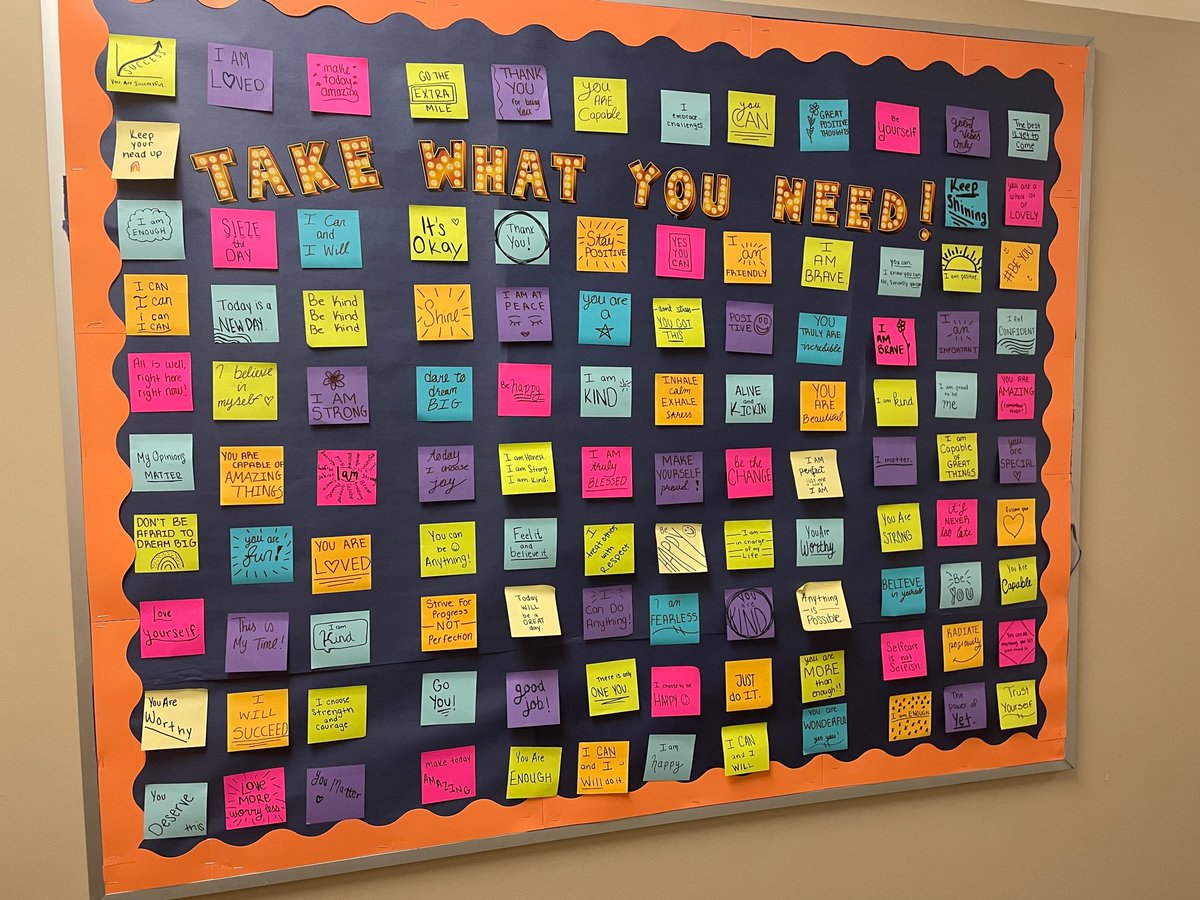 SUCCESS
You Are Successful
I AM
LOVED
make today
amazing
GO THE
EXTRA
MILE
THANK
YOU
for being
You
you
ARE
Capable
I
embrace
challenges
you
CAN
GREAT
POSITIVE
THOUGHTS
Be
yourself
good
vibes
Only
The best
is yet to
come
Keep
your
head up
TAKE WHAT YOU NEED!
Keep
Shining
you are a
whole lot
of
LOVELY
I am
ENOUGH
SIEZE
the
DAY
I Can
and
I Will
It's
Okay
Thank
You!
Stay
POSITIVE
YES
YOU
CAN
I
am
FRIENDLY
I
AM
BRAVE
you can.
I know you can.
I am positive
#BE YOU
I CAN
I can
i can
I CAN
Today is a
NEW DAY.
Be Kind
Be Kind
Be Kind
Shine
I AM AT
PEACE
you are
a
don't stress
YOU GOT
THIS
POSI
TIVE
YOU
TRULY ARE
incredible
I
AM
BRAVE!
I
am
IMPORTANT
I feel
CONFIDENT
All is well,
right here
right now!
I believe
in
myself
I AM
STRONG
dare to
dream
BIG
Be happy
I am
KIND
INHALE
calm
EXHALE
stress
ALIVE
and
KICKIN
YOU
ARE
Beautiful
I am kind
I am proud
to be
me
YOU ARE
AMAZING
(remember
that!)
My Opinions
MATTER
YOU ARE
CAPABLE OF
AMAZING
THINGS
I am
today
I choose
joy
I am Honest.
I am Strong.
I am Kind.
I AM
truly
BLESSED
MAKE
YOURSELF
proud!
be the
CHANGE
I AM
perfect
just me
I AM
I matter.
I am
Capable
OF
GREAT
THINGS
you
are
SPECIAL
DON'T BE
AFRAID TO
DREAM BIG
you are
Fun!
YOU ARE
LOVED
You can
be
Anything!
Feel it
and
believe it.
I
treat others
with
Respect
Be
HAPPY
I am
in charge
of my
Life.
You Are
Worthy
You Are
STRONG
it's
NEVER
too late
Follow your
Love
yourself
This is
My Time!
I am
Kind
Strive For
Progress
-NOT-
Perfection
Today
WILL
be a
GREAT
day
I
Can Do
Anything!
I am
FEARLESS
YOU
are
KIND
Anything
is
Possible
BELIEVE
in yourself
Be
YOU
You Are
Capable
You Are
Worthy
I
WILL
SUCCEED
I choose
Strength
and
courage.
Go
You!
good
job!
There is only
ONE YOU
I choose to be
HAPPY
JUST
do IT.
you are
MORE
than
enough!!
Selfcare
is not
Selfish
RADIATE
positivity
You can be
anything you set
your mind to.
You
Deserve
this
LOVE
MORE
worry less.
You Matter
make today
AMAZING
You Are
ENOUGH
I CAN
and I
Will do it
I am
happy
I CAN
and I
WILL
you are
WONDERFUL
yes you!
I am ENOUGH
The power
of
Yet.
Trust
Yourself